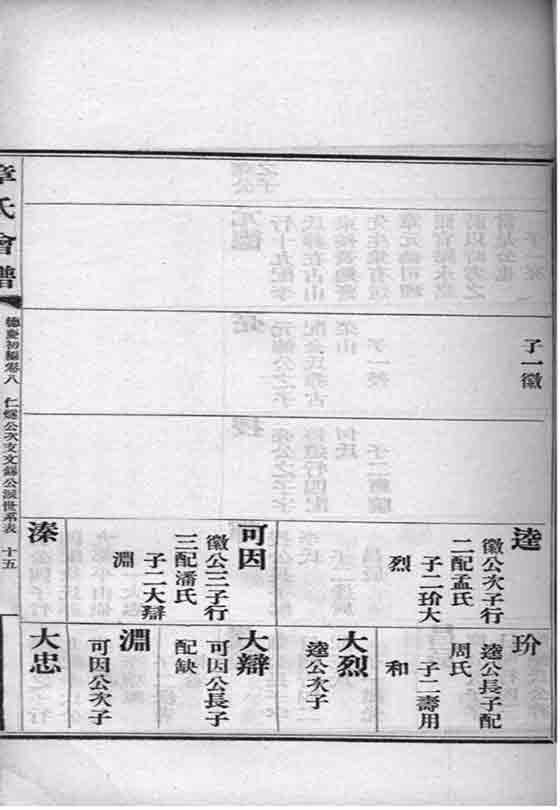 子一徽
逵
徽公次子行
二配孟氏
子二玠大
烈
可因
徽公三子行
三配潘氏
子二大辯
淵
溱
玠
逵公長子配
周氏
子二壽用
和
大烈
逵公次子
大辯
可因公長子
配缺
淵
可因公次子
大忠
章氏會譜
德慶初編卷八 仁燧公次支文錫公派世系表 十五